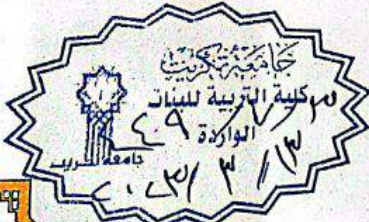 جامعة تكريت
كلية التربية للبنات
الواردة
جامعة تكريت
١٣ / ٣ / ٢٠٢٣